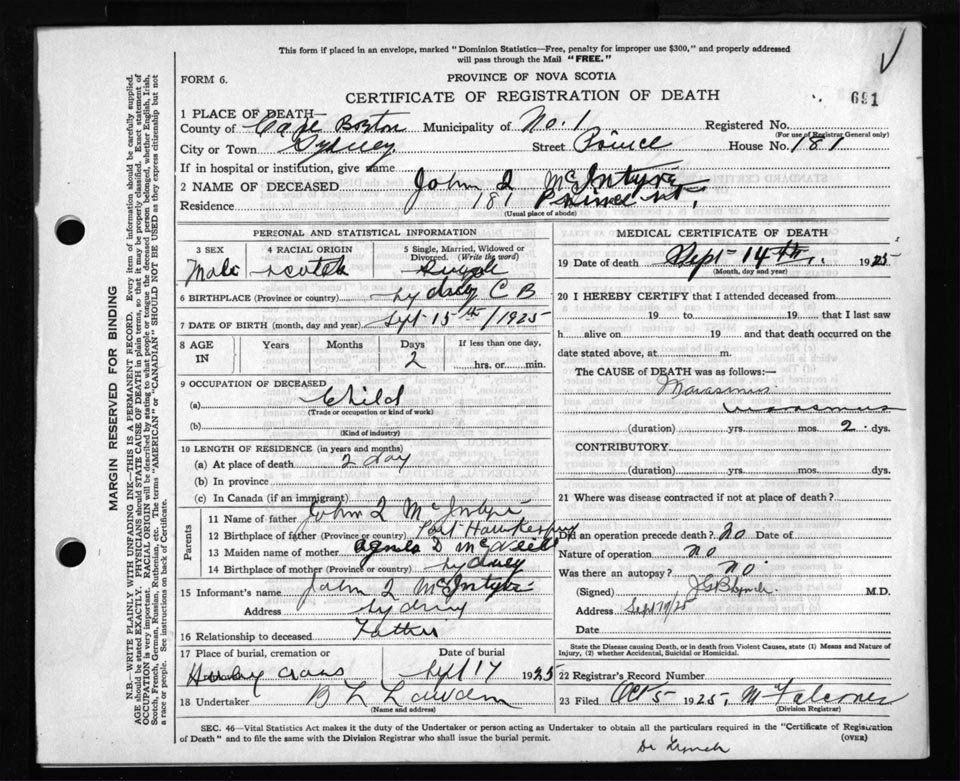 This form if placed in an envelope, marked "Dominion Statistics—Free, penalty for improper use $300," and properly addressed
will pass through the Mail "FREE."
FORM 6.
PROVINCE OF NOVA SCOTIA
CERTIFICATE OF REGISTRATION OF DEATH
691
1 PLACE OF DEATH—
County of Cape Breton Municipality of No. 1 Registered No.
(For use of Registrar General only)
City or Town Sydney Street Prince House No. 181
If in hospital or institution, give name
2 NAME OF DECEASED John McIntyre
Residence 181 Prince st.
(Usual place of abode)
PERSONAL AND STATISTICAL INFORMATION
3 SEX 4 RACIAL ORIGIN 5 Single, Married, Widowed or Divorced. (Write the word)
Male scotch Single
6 BIRTHPLACE (Province or country) Sydney C B
7 DATE OF BIRTH (month, day and year) Sept 15th/1925
8 AGE IN Years Months Days If less than one day,
2 hrs. or min.
9 OCCUPATION OF DECEASED
(a) Child
(Trade or occupation or kind of work)
(b)
(Kind of industry)
10 LENGTH OF RESIDENCE (in years and months)
(a) At place of death 2 day
(b) In province
(c) In Canada (if an immigrant)
Parents
11 Name of father John McIntyre
12 Birthplace of father (Province or country) Port Hawkesbury
13 Maiden name of mother Agnes D
14 Birthplace of mother (Province or country) Sydney
15 Informant's name John McIntyre
Address Sydney
16 Relationship to deceased Father
17 Place of burial, cremation or Date of burial
Holy Cross Sept 17 1925
18 Undertaker
(Name and address)
MEDICAL CERTIFICATE OF DEATH
19 Date of death Sept 14th, 1925
(Month, day and year)
20 I HEREBY CERTIFY that I attended deceased from
19 to 19 that I last saw
h alive on 19 and that death occurred on the
date stated above, at m.
The CAUSE of DEATH was as follows:—
Marasmus
marasmus
(duration) yrs. mos. 2 dys.
CONTRIBUTORY.
(duration) yrs. mos. dys.
21 Where was disease contracted if not at place of death?
Did an operation precede death? no Date of
Nature of operation no
Was there an autopsy? no.
(Signed) M.D.
Address Sept
Date
State the Disease causing Death, or in death from Violent Causes, state (1) Means and Nature of Injury, (2) whether Accidental, Suicidal or Homicidal.
22 Registrar's Record Number
23 Filed Oct 5 1925,
(Division Registrar)
SEC. 46—Vital Statistics Act makes it the duty of the Undertaker or Undertaker or person acting as Undertaker to obtain all the particulars required in the "Certificate of Registration
of Death" and to file the same with the Division Registrar who shall issue the burial permit.
(OVER)
MARGIN RESERVED FOR BINDING
N.B.—WRITE PLAINLY WITH UNFADING INK—THIS IS A PERMANENT RECORD. Every item of information should be carefully supplied.
AGE should be stated EXACTLY. PHYSICIANS should STATE CAUSE OF DEATH in plain terms, so that it may be properly classified. Exact statement of
OCCUPATION is very important. RACIAL ORIGIN will be described by stating to what people or tongue the deceased person belonged, whether English, Irish,
Scotch, French, German, Russian, Ruthenian, etc. The terms "AMERICAN" or "CANADIAN" SHOULD NOT BE USED as they express citizenship but not
a race or people. See instructions on back of Certificate.